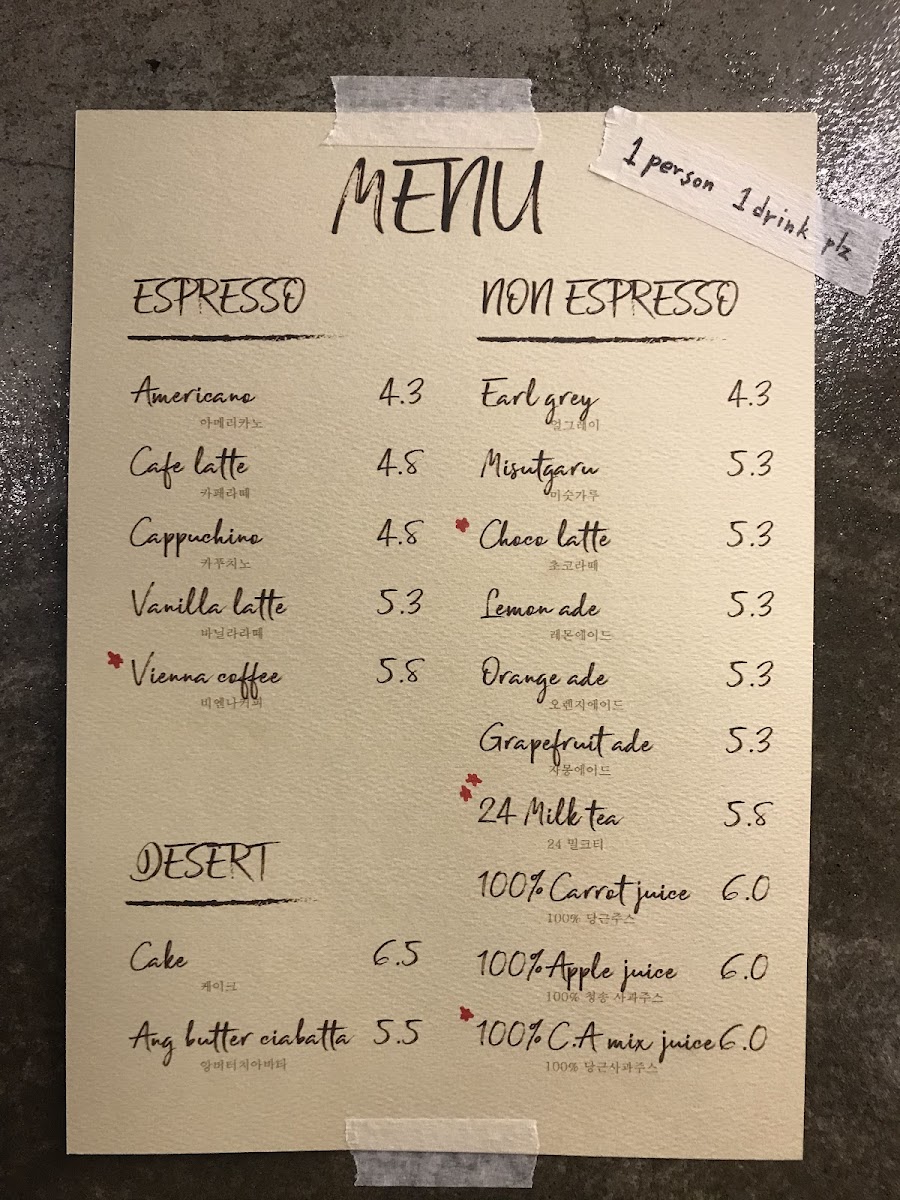 MENU
1 person 1 drink plz
ESPRESSO
Americano 4.3
아메리카노
Cafe latte 4.8
카페라떼
Cappuchino 4.8
카푸치노
Vanilla latte 5.3
바닐라라떼
Vienna coffee 5.8
비엔나커피
DESERT
Cake 6.5
케이크
Ang butter ciabatta 5.5
앙버터치아바타
NON ESPRESSO
Earl grey 4.3
얼그레이
Misutgaru 5.3
미숫가루
Choco latte 5.3
초코라떼
Lemon ade 5.3
레몬에이드
Orange ade 5.3
오렌지에이드
Grapefruit ade 5.3
자몽에이드
24 Milk tea 5.8
24 밀크티
100% Carrot juice 6.0
100% 당근주스
100% Apple juice 6.0
100% 청송 사과주스
100% C.A mix juice 6.0
100% 당근사과주스